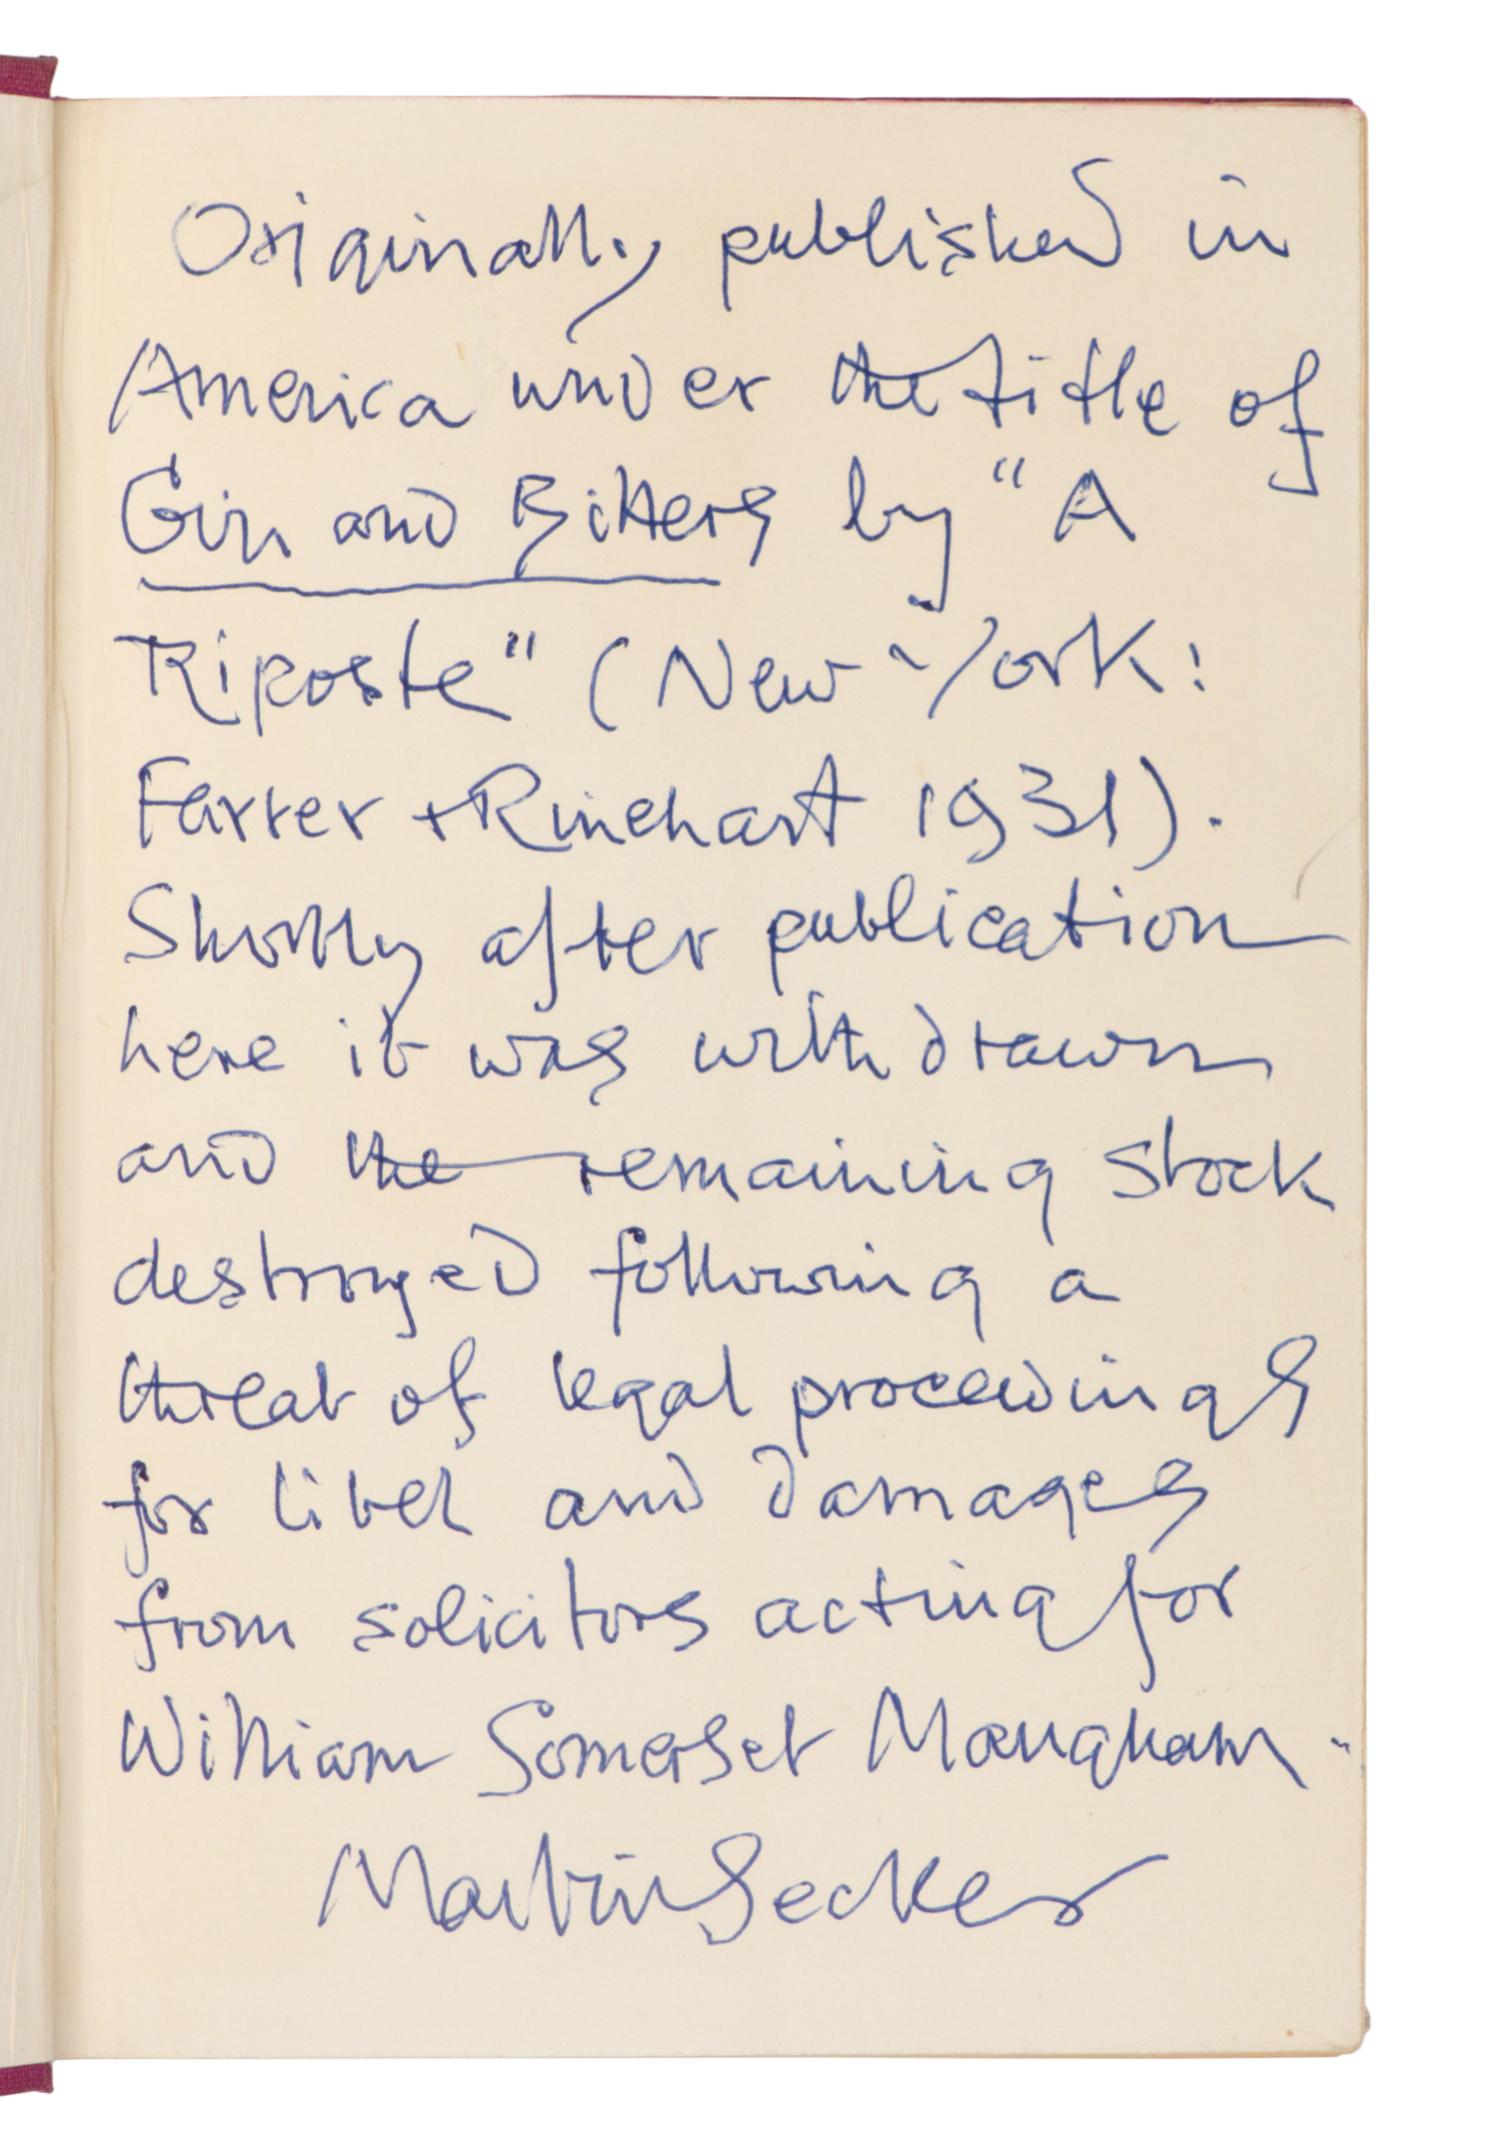 Originally published in
America under the title of
Gin and Bitters by "A
Riposte" (New York:
Farrer + Rinehart 1931).
Shortly after publication
here it was withdrawn
and the remaining stock
destroyed following a
threat of legal proceedings
for libel and damages
from solicitors acting for
William Somerset Maugham.
Martin Secker